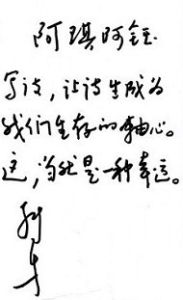 阿琪阿钰
写诗，让诗生成为
我们生存的轴心。
这，当然是一种幸运。